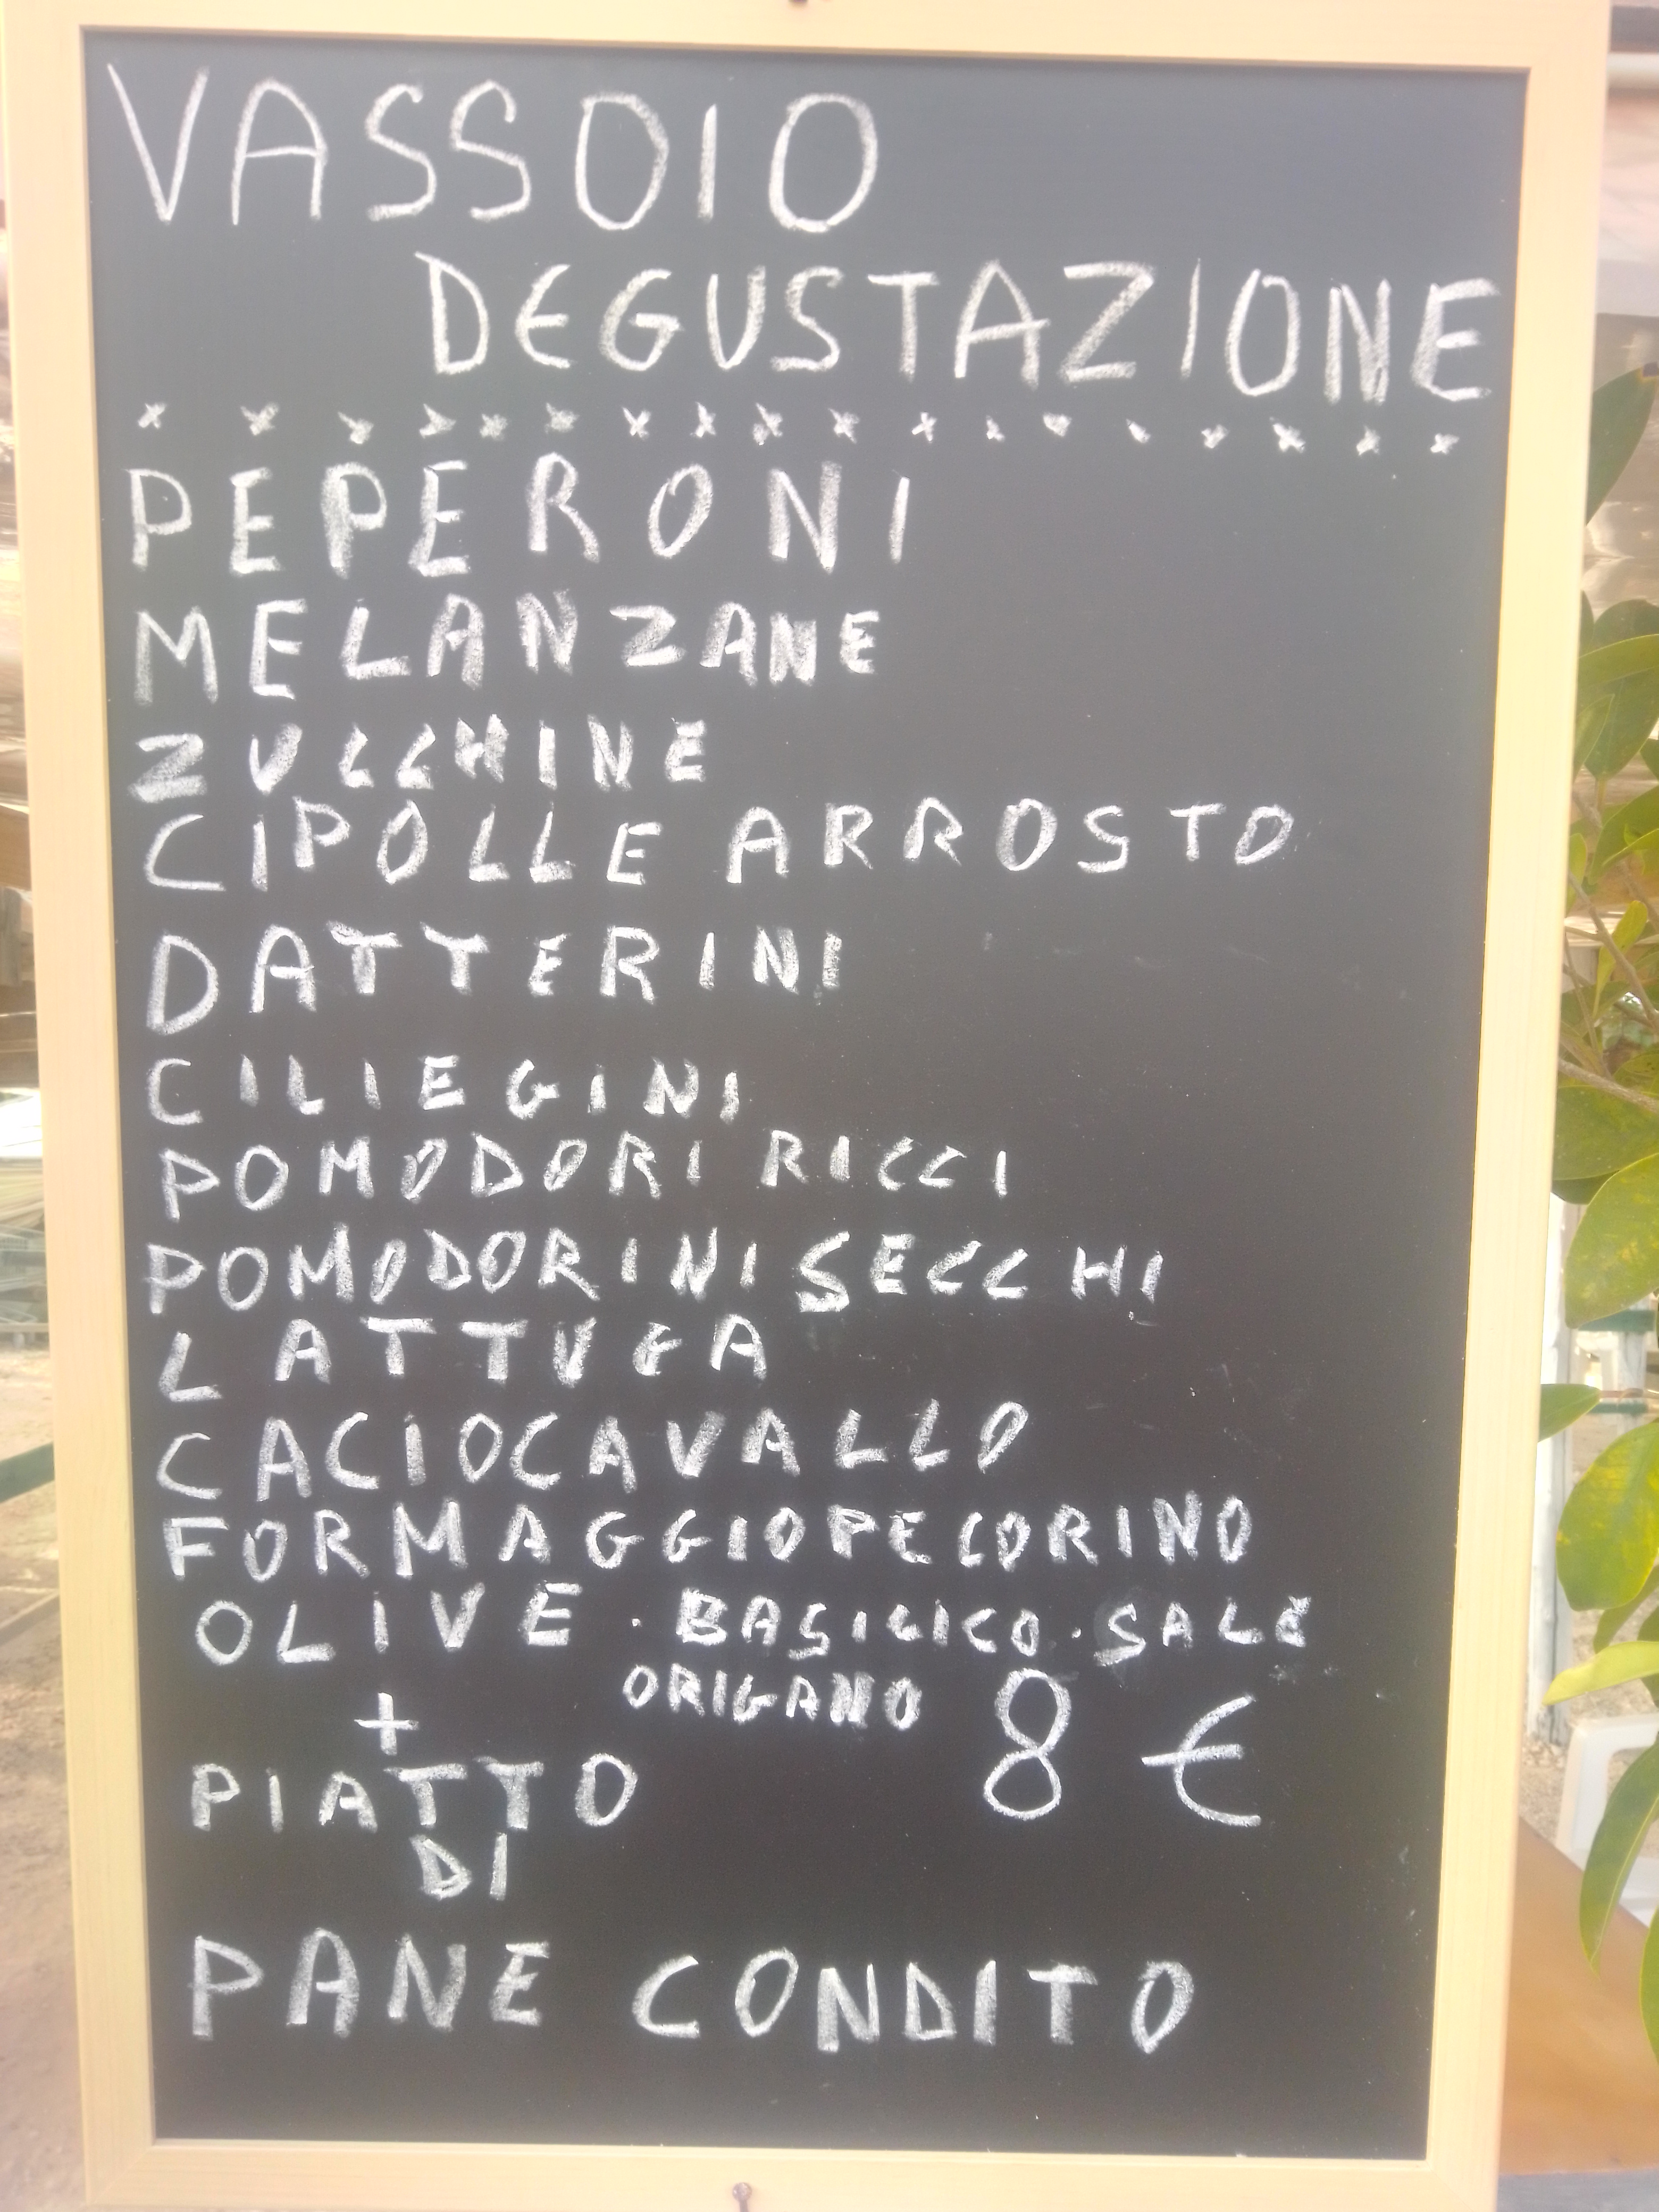 VASSOIO
DEGUSTAZIONE
x x x x x x x x x x x x x x x x x x
PEPERONI
MELANZANE
ZUCCHINE
CIPOLLE ARROSTO
DATTERINI
CILIEGINI
POMODORI RICCI
POMODORINI SECCHI
LATTUGA
CACIOCAVALLO
FORMAGGIO PECORINO
OLIVE · BASILICO · SALE
ORIGANO
+
8 €
PIATTO
DI
PANE CONDITO